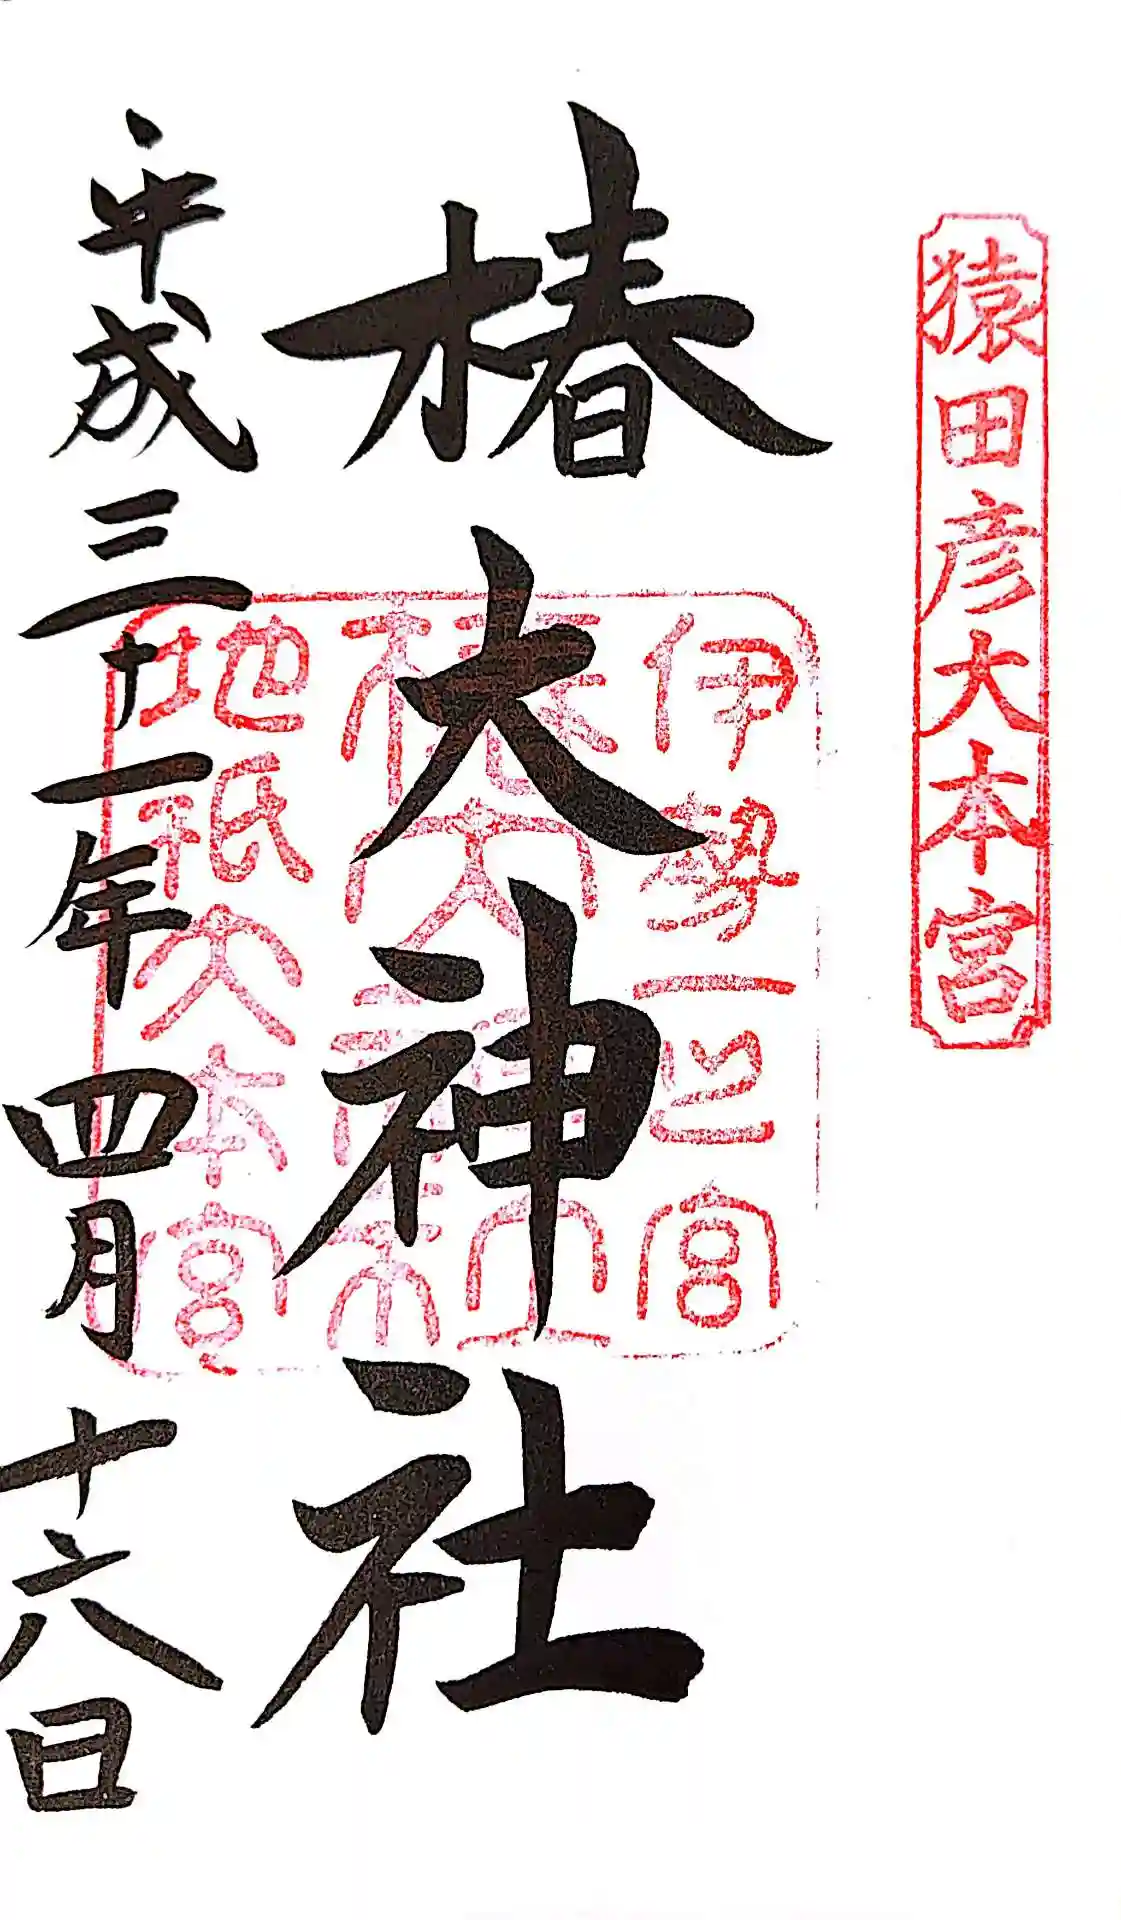 猿田彦大本宮
椿大神社
伊勢一之宮
地祇大本宮
平成三十一年四月十六日